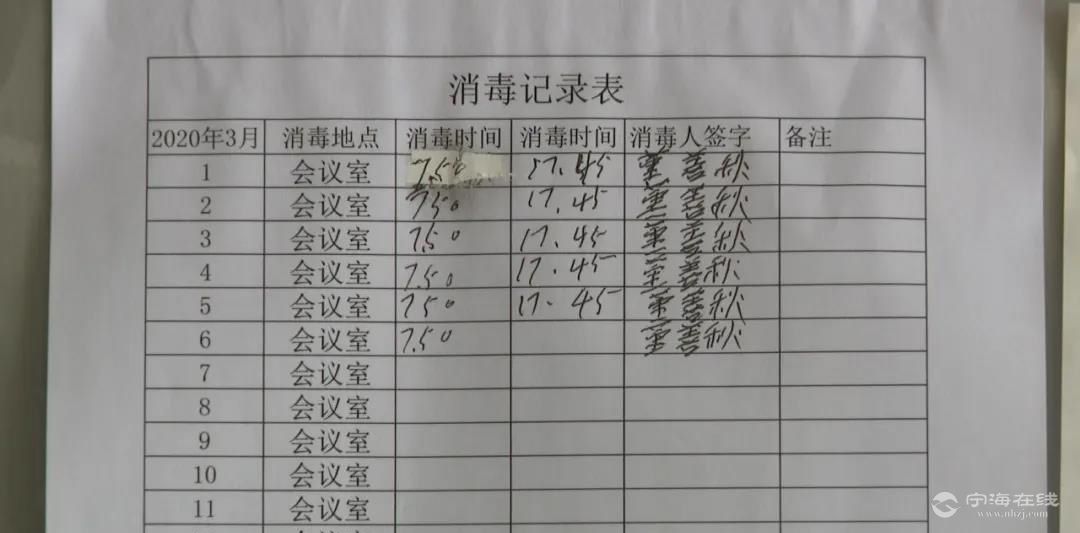 消毒记录表
2020年3月 消毒地点 消毒时间 消毒时间 消毒人签字 备注
1 会议室 7.50 17.45 董善秋
2 会议室 7.50 17.45 董善秋
3 会议室 7.50 17.45 董善秋
4 会议室 7.50 17.45 董善秋
5 会议室 7.50 17.45 董善秋
6 会议室 7.50 董善秋
7 会议室
8 会议室
9 会议室
10 会议室
11 会议室
宁海在线
www.nhzj.com